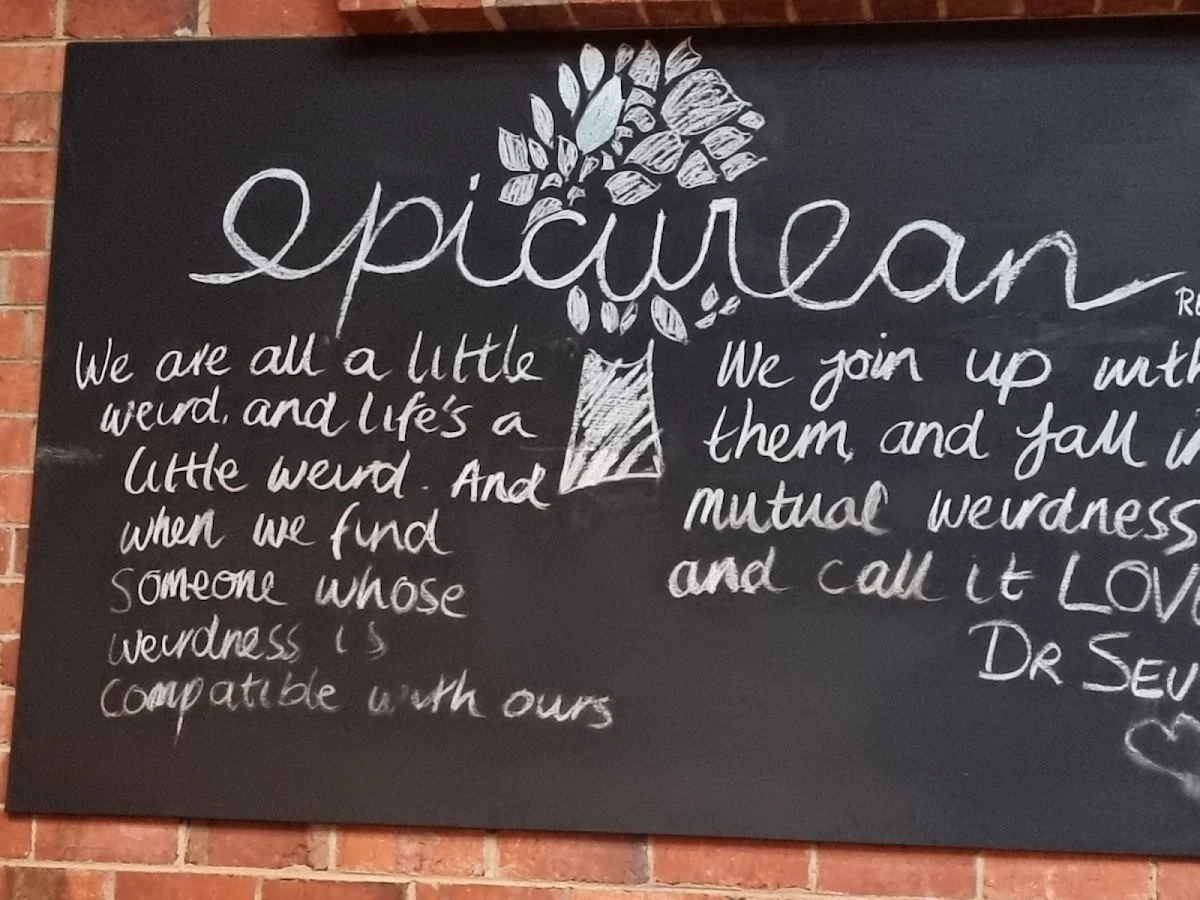 epicurean
We are all a little
weird. and life's a
little weird. And
when we find
someone whose
weirdness is
compatible with ours
We join up with
them, and fall in
mutual weirdness
and call it LOVE
DR SEU